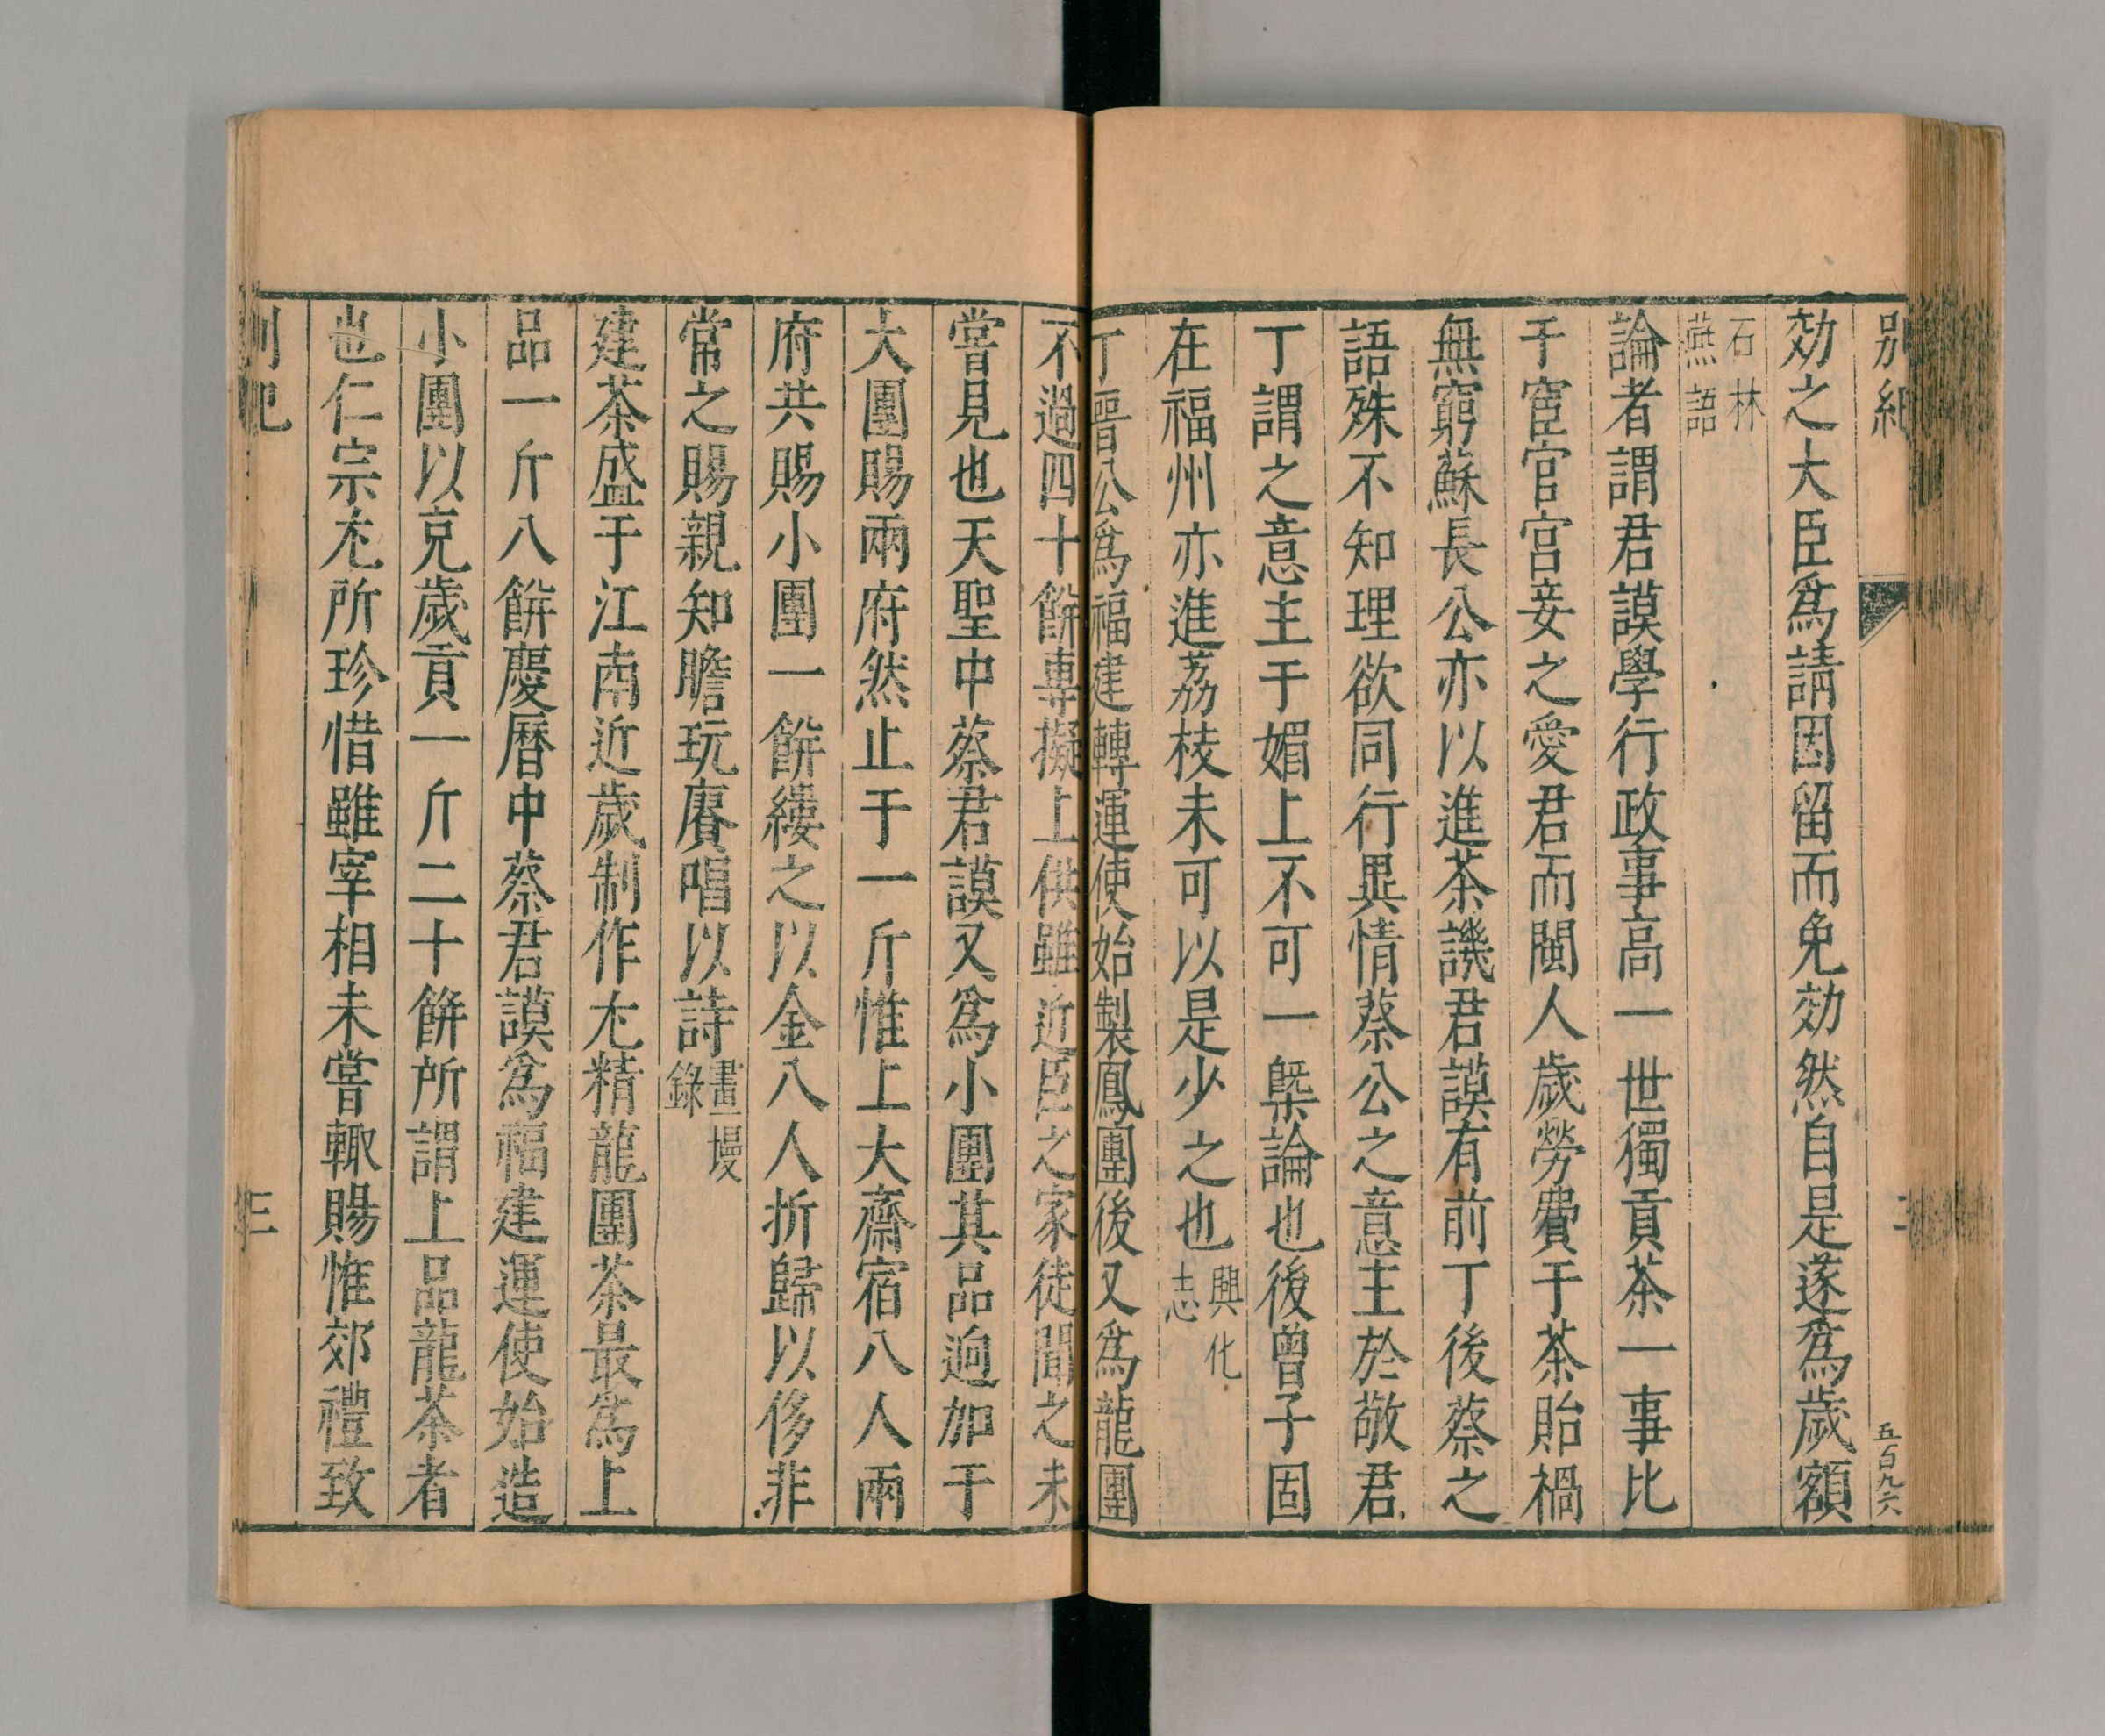 別紀
二
五百九六
効之大臣爲請因留而免効然自是遂爲歲額
石林
燕語
論者謂君謨學行政事高一世獨貢茶一事比
于宦官宮妾之愛君而閩人歲勞費于茶貽禍
無窮蘇長公亦以進茶譏君謨有前丁後蔡之
語殊不知理欲同行異情蔡公之意主於敬君
丁謂之意主于媚上不可一槩論也後曾子固
在福州亦進荔枝未可以是少之也興化
志
丁晉公爲福建轉運使始製鳳團後又爲龍團
不過四十餠專擬上供雖近臣之家徒聞之未
嘗見也天聖中蔡君謨又爲小團其品逈加于
大團賜兩府然止于一斤惟上大齋宿八人兩
府共賜小團一餠縷之以金八人折歸以侈非
常之賜親知瞻玩賡唱以詩畫墁
錄
建茶盛于江南近歲制作尤精龍團茶最爲上
品一斤八餠慶曆中蔡君謨爲福建運使始造
小團以充歲貢一斤二十餠所謂上品龍茶者
也仁宗尤所珍惜雖宰相未嘗輙賜惟郊禮致
別紀
三